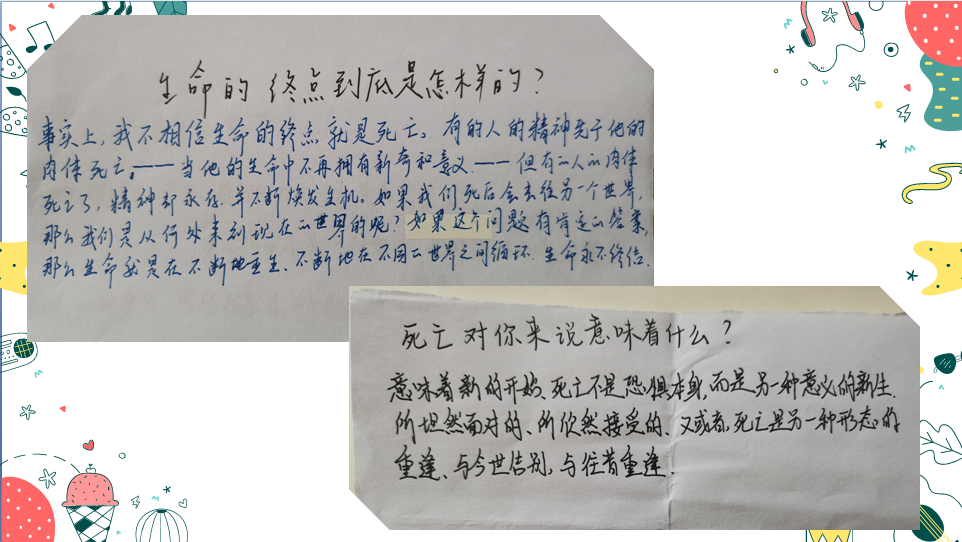 生命的终点到底是怎样的？
事实上，我不相信生命的终点就是死亡。有的人的精神先于他的
肉体死亡，——当他的生命中不再拥有新奇和意义——但有的人的肉体
死亡了，精神却永存，并不断焕发生机。如果我们死后会去往另一个世界，
那么我们是从何处来到现在的世界的呢？如果这个问题有肯定的答案，
那么生命就是在不断地重生、不断地在不同的世界之间循环，生命永不终结。
死亡对你来说意味着什么？
意味着新的开始，死亡不是恐惧本身，而是另一种意义的新生。
所坦然面对的、所欣然接受的、又或者，死亡是另一种形态的
重逢、与今世告别，与往昔重逢.